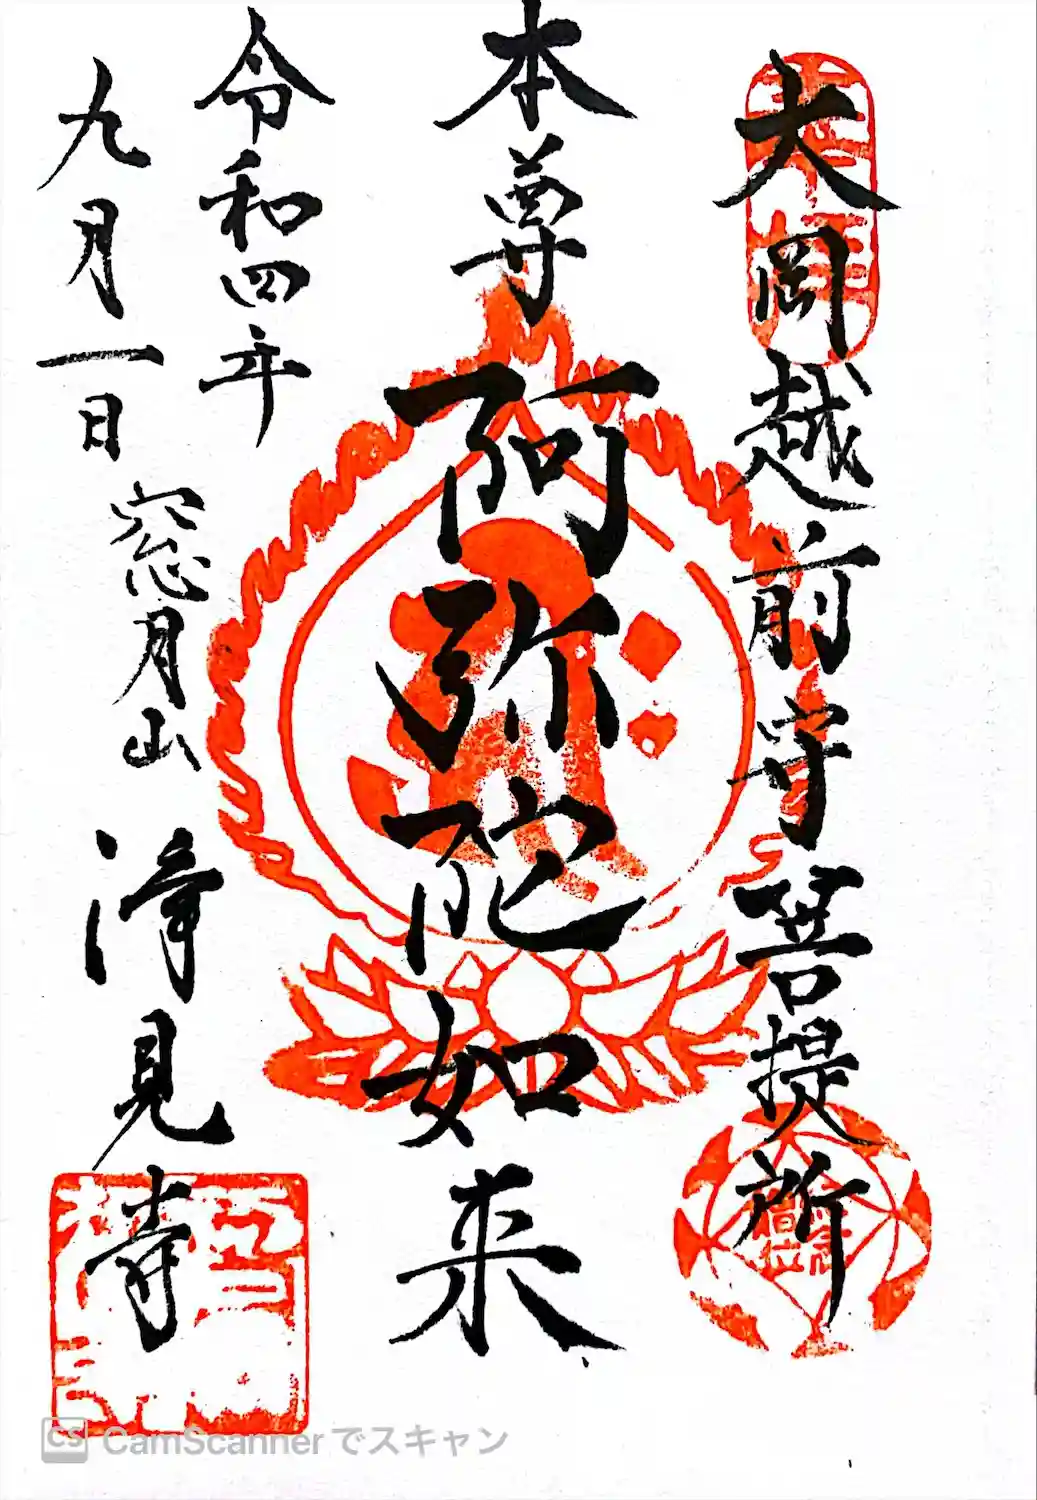 大岡越前守菩提所
本尊
阿弥陀如来
令和四年
九月一日
窓月山
淨見寺
CS CamScannerでスキャン